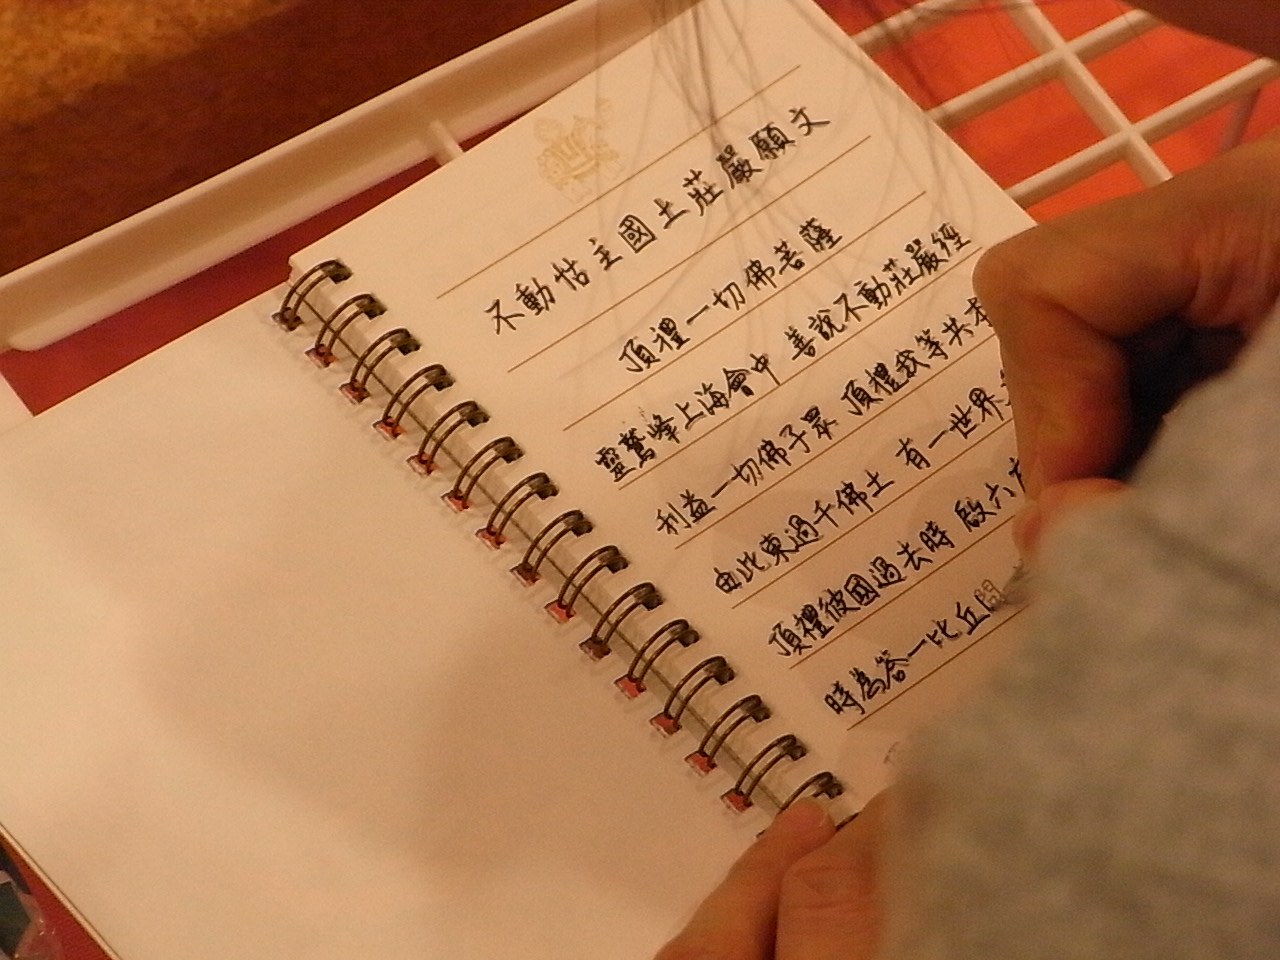 不動怙主國土莊嚴願文
頂禮一切佛菩薩
靈鷲峰上海會中 善說不動莊嚴經
利益一切佛子眾 頂禮我等共本
由此東過千佛土 有一世界
頂禮彼國過去時 啟六
時為答一比丘問